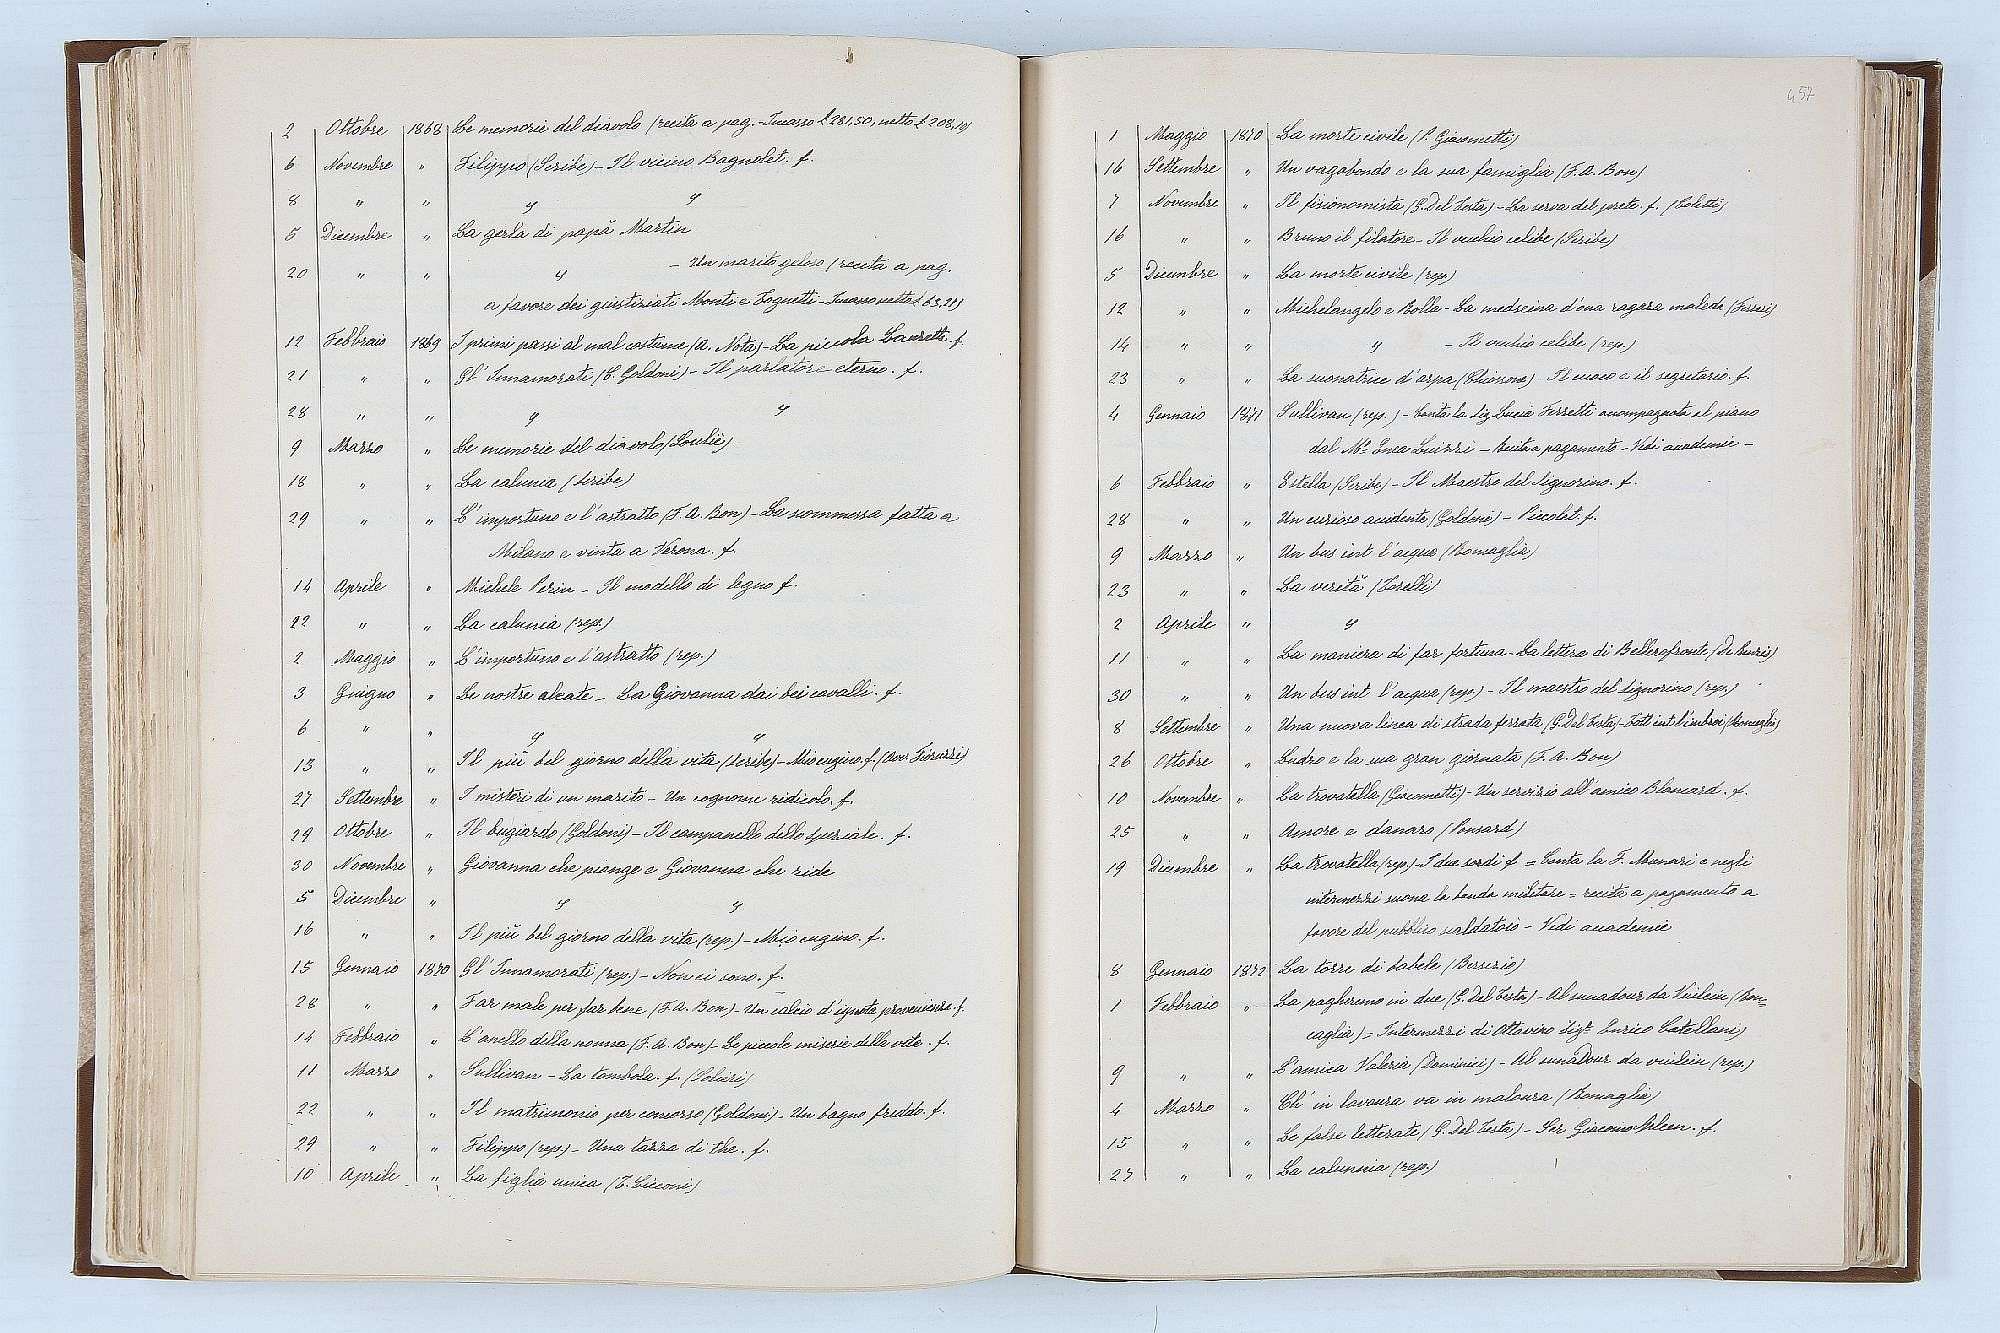 2 Ottobre 1868 Le memorie del diavolo (recita a pag. - Incasso £ 281,50, netto £ 208,19)
6 Novembre " Filippo (Scribe) - Il vicino Bagnolet. f.
8 " " " "
5 Dicembre " La gerla di papà Martin
20 " " " - Un marito geloso (recita a pag.
a favore dei giustiziati Monti e Tognetti - Incasso netto £ 63,21)
12 Febbraio 1869 I primi passi al mal costume (A. Nota) - La piccola Lauretta. f.
21 " " Gl' Innamorati (C. Goldoni) - Il parlatore eterno. f.
28 " " " "
9 Marzo " Le memorie del diavolo (Soulié)
18 " " La calunia (Scribe)
29 " " L'importuno e l'astratto (F. A. Bon) - La scommessa fatta a
Milano e vinta a Verona. f.
14 Aprile " Michele Perin - Il modello di legno f.
22 " " La calunia (rep.)
2 Maggio " L'importuno e l'astratto (rep.)
3 Guigno " Le nostre aleate - La Giovanna dai bei cavalli. f.
6 " " " "
13 " " Il più bel giorno della vita (Scribe) - Mio cugino. f. (Avv. Fioruzzi)
27 Settembre " I misteri di un marito - Un cognome ridicolo. f.
29 Ottobre " Il bugiardo (Goldoni) - Il campanello dello speziale. f.
30 Novembre " Giovanna che piange e Giovanna che ride
5 Dicembre " " "
16 " " Il più bel giorno della vita (rep.) - Mio cugino. f.
15 Gennaio 1870 Gl' Innamorati (rep.) - Non ci sono. f.
28 " " Far male per far bene (F. A. Bon) - Un calcio d'ignota provenienza. f.
14 Febbraio " L'anello della nonna (F. A. Bon) - Le piccole miserie della vita. f.
11 Marzo " Sullivan - La tombola. f. (Soliari)
22 " " Il matrimonio per concorso (Goldoni) - Un bagno freddo. f.
29 " " Filippo (rep.) - Una tazza di the. f.
10 Aprile " La figlia unica (T. Ciconi)
457
1 Maggio 1870 La morte civile (P. Giacometti)
16 Settembre " Un vagabondo e la sua famiglia (F. A. Bon)
7 Novembre " Il fisionomista (G. Del Testa) - La serva del prete. f. (Coletti)
16 " " Bruno il filatore - Il vecchio celibe (Scribe)
5 Dicembre " La morte civile (rep)
12 " " Michelangelo e Rolla - La medicina d'una ragazza malada (Ferrari)
14 " " " - Il vecchio celibe (rep.)
23 " " La suonatrice d'arpa (Chiossone) Il cuoco e il segretario. f.
4 Gennaio 1871 Sullivan (rep.) - Canta la Sig. Lucia Ferretti accompagnata al piano
dal Mo. Enea Luizzi - Recita a pagamento - Vedi accademie -
6 Febbraio " Estella (Scribe) - Il Maestro del Signorino. f.
28 " " Un curioso accidente (Goldoni) - Piccolet. f.
9 Marzo " Un bus int l'aequa (Romaglia)
23 " " La verità (Torelli)
2 Aprile " "
11 " " La maniera di far fortuna - La lettera di Bellerofronte
30 " " Un bus int l'aequa (rep.) - Il maestro del Signorino (rep.)
8 Settembre " Una nuova linea di strada ferrata (G. Del Testa) - Tott int l'imbroi (Romaglia)
26 Ottobre " Ludro e la sua gran giornata (F. A. Bon)
10 Novembre " La trovatella (Giacometti) - Un servizio all'amico Blancard. f.
25 " " Amore e danaro (Ponsard)
19 Dicembre " La trovatella (rep.) - I due sordi f. = Canta la F. Munari e negli
intermezzi suona la banda militare = recita a pagamento a
favore del pubblico scaldatoio - Vedi accademie
8 Gennaio 1872 La torre di babele (Bersezio)
1 Febbraio " La pagheremo in due (G. Del Testa) - Al sunadour da viulein (Ron-
caglia) - Intermezzi di Ottavino Sigr. Enrico Catellani)
9 " " L'amica Valeria (Dominici) - Al sunadour da viulein (rep.)
4 Marzo " Chi in lavoura va in maloura (Romaglia)
15 " " Le false letterate (G. Del Testa) - Ser Giacomo f.
27 " " La calunnia (rep.)